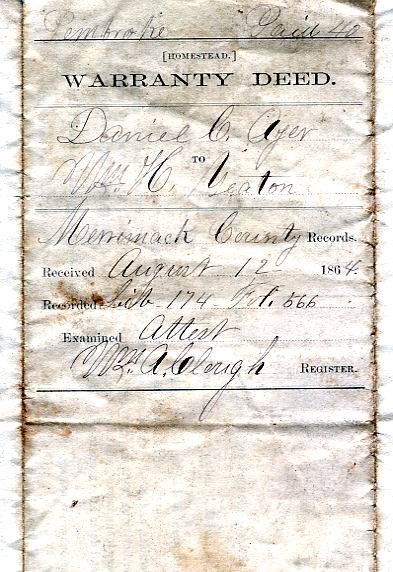 Pembroke Paid 40
[HOMESTEAD.]
WARRANTY DEED.
Daniel C. Ayer
TO
Wm. H. Yeaton
Merrimack County Records.
Received August 12 1864.
Recorded Lib. 174 Fol. 566
Examined Attest
Wm. A. Clough REGISTER.